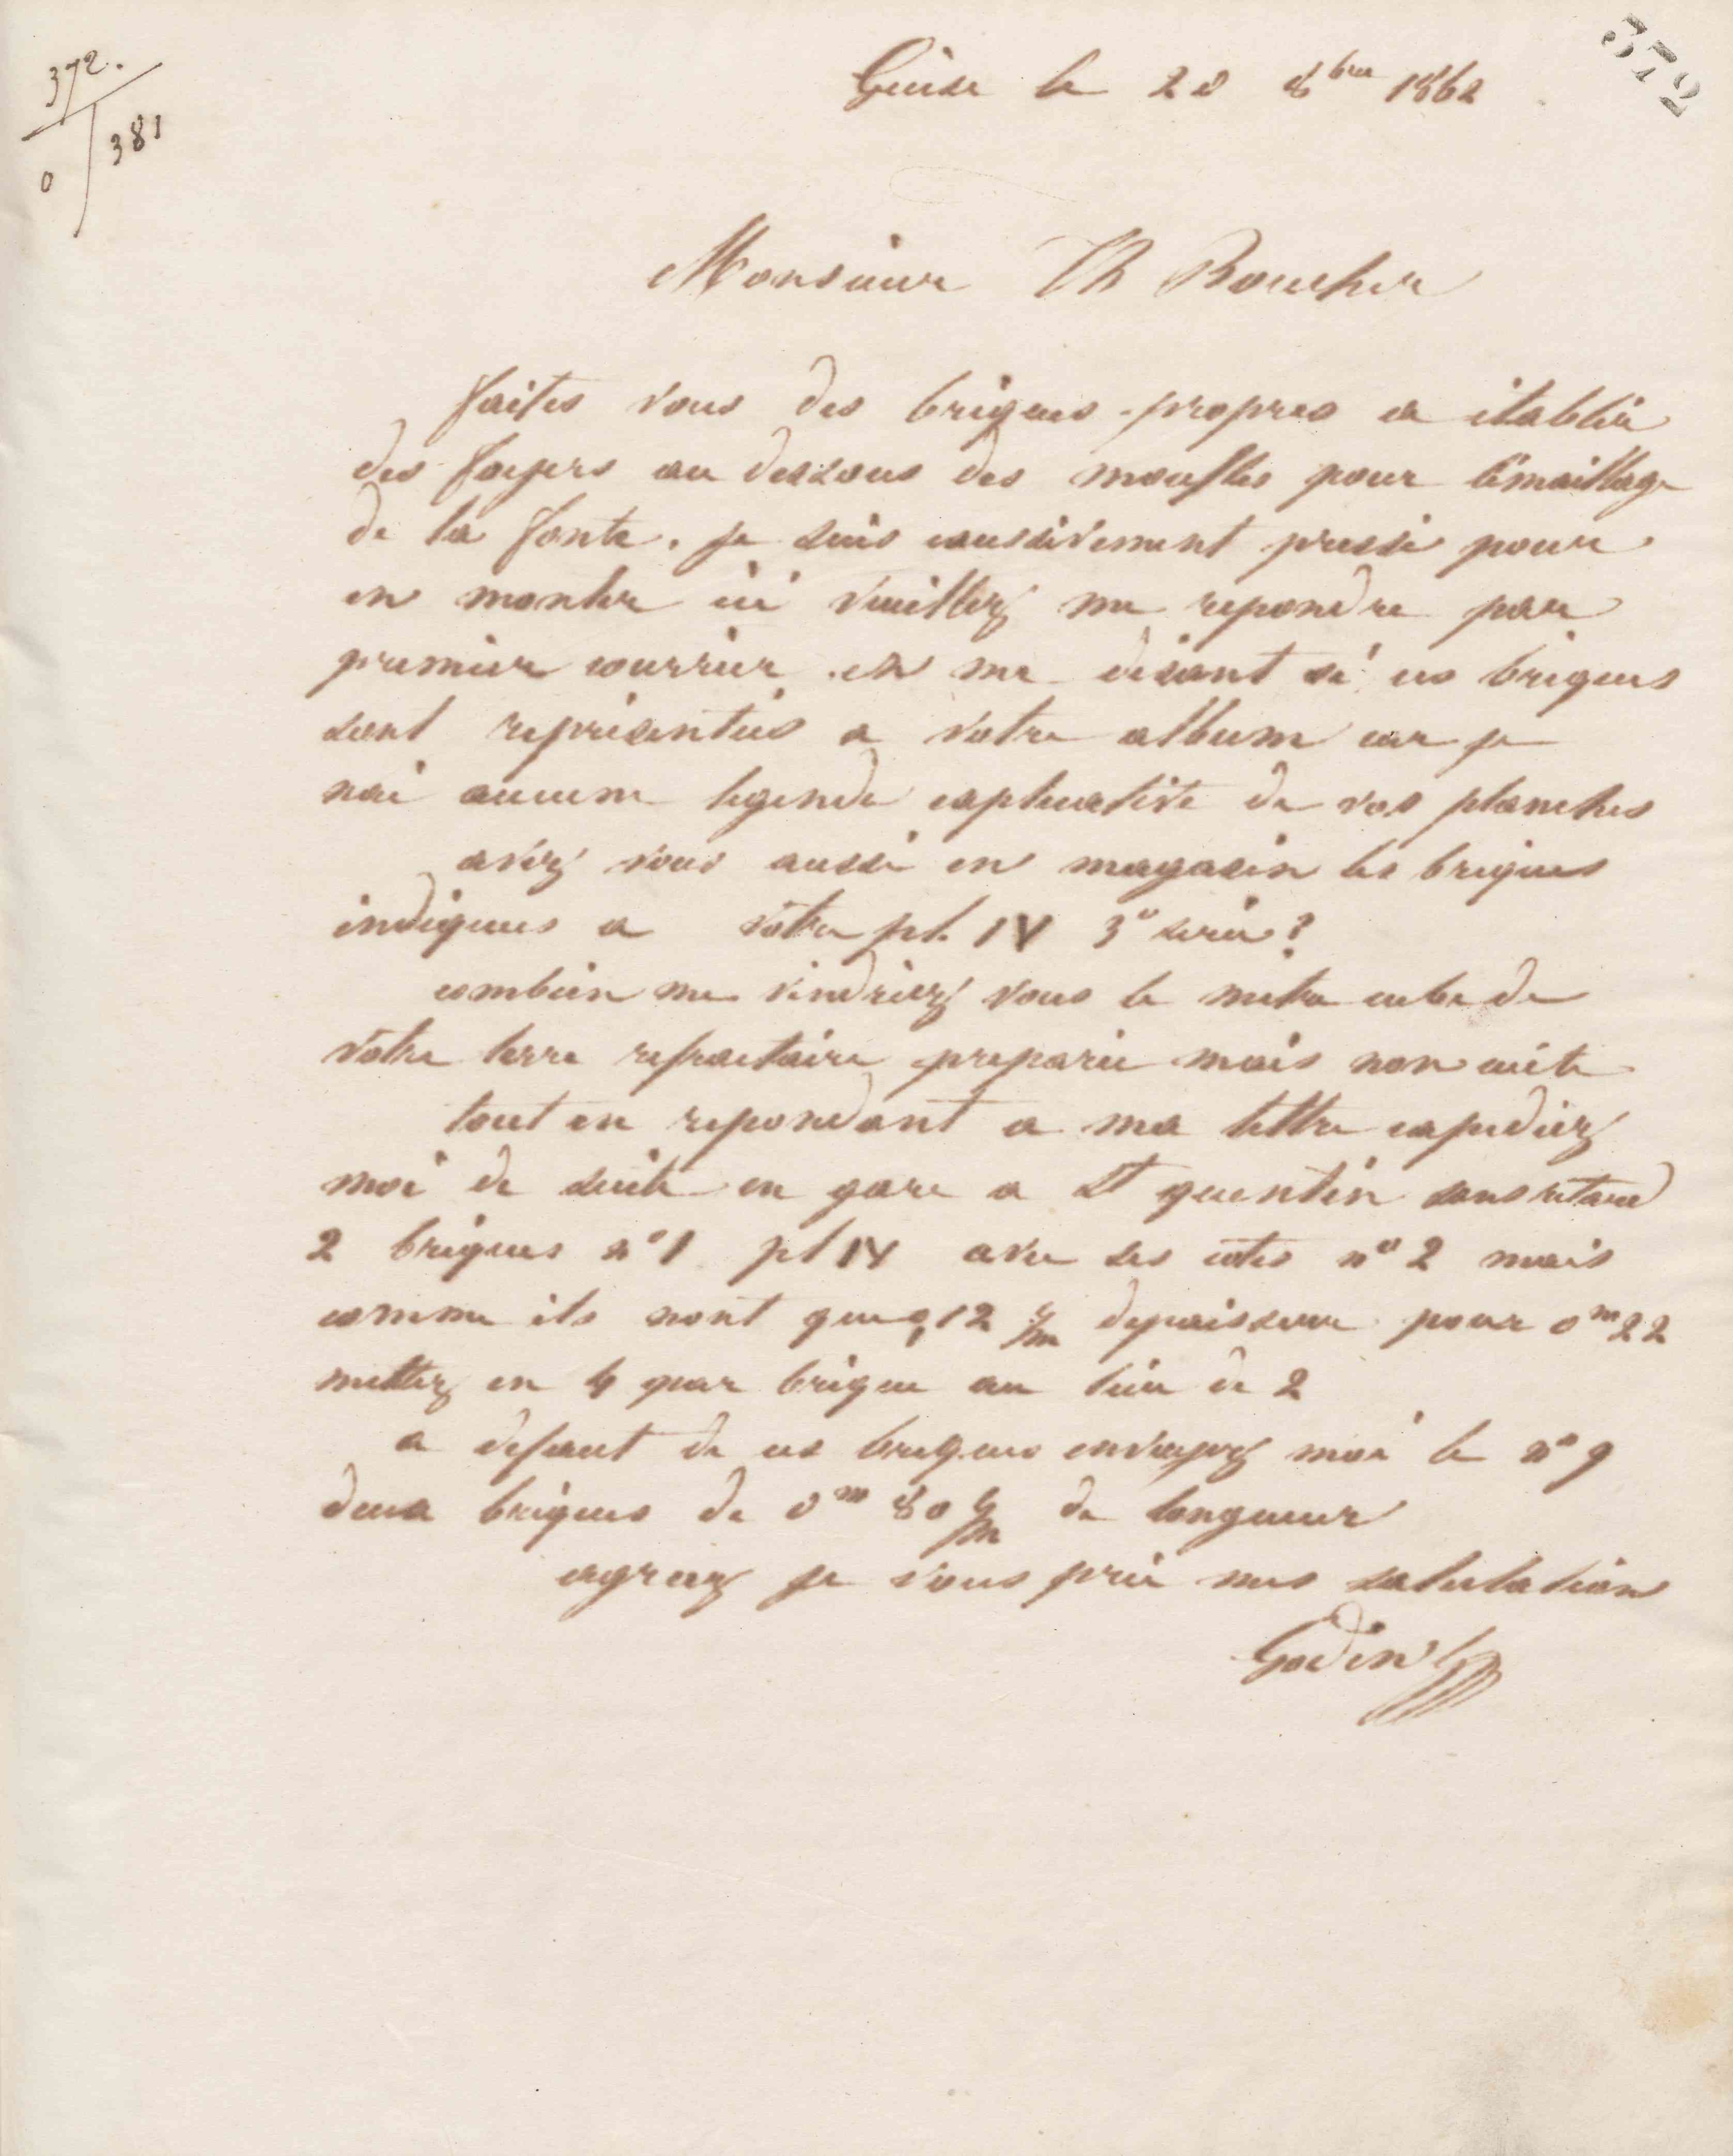 372.
0 381
372
Guise le 28 8bre 1862
Monsieur Th Boucher
faites vous des briques propres a établir
des foyers au dessous des moufles pour lémaillage
de la fonte. je suis excessivement pressé pour
en monter ici veuillez me repondre par
premier courrier en me disant si ces briques
sont représentées a votre album car je
nai aucune legende explicative de vos planches
avez vous aussi en magasin les briques
indiquees a votre pl. IV 3e serie?
combien me vendriez vous le metre cube de
votre terre refractaire preparée mais non cuite
tout en repondant a ma lettre expediez
moi de suite en gare a St quentin sans retard
2 briques no 1 pl IV avec les cotes no 2 mais
comme ils nont que 0,12 c/m depaisseur pour 0m22
mettez en 4 par brique au lieu de 2
a defaut de ces briques envoyez moi le no 9
deux briques de 0m 80 c/m de longueur
agreez je vous prie mes salutations
Godin